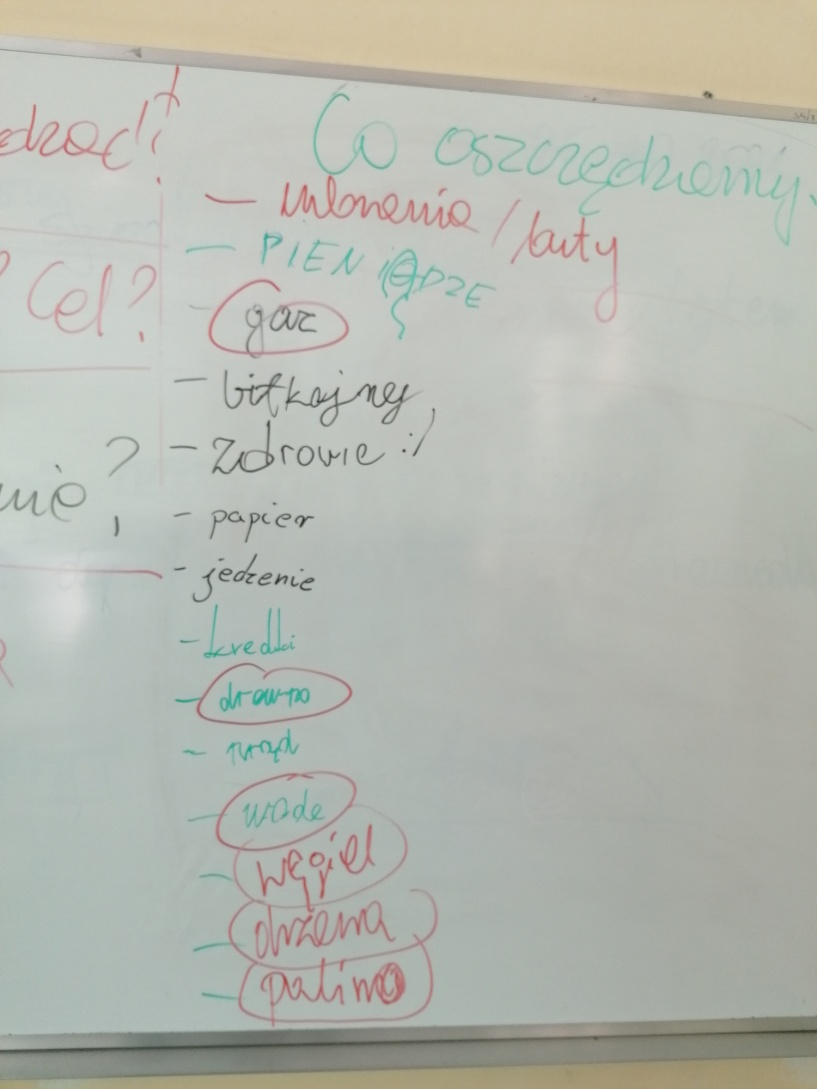 Co oszczędziemy
- ubonenia / karty
- PIENIĄDZE
gaz
- bitkojny,
- zdrowie :/
- papier
- jedzenie
- kredki
- drewno
- prąd
- wode
- węgiel
- drzewa
- paliwo
Cel?